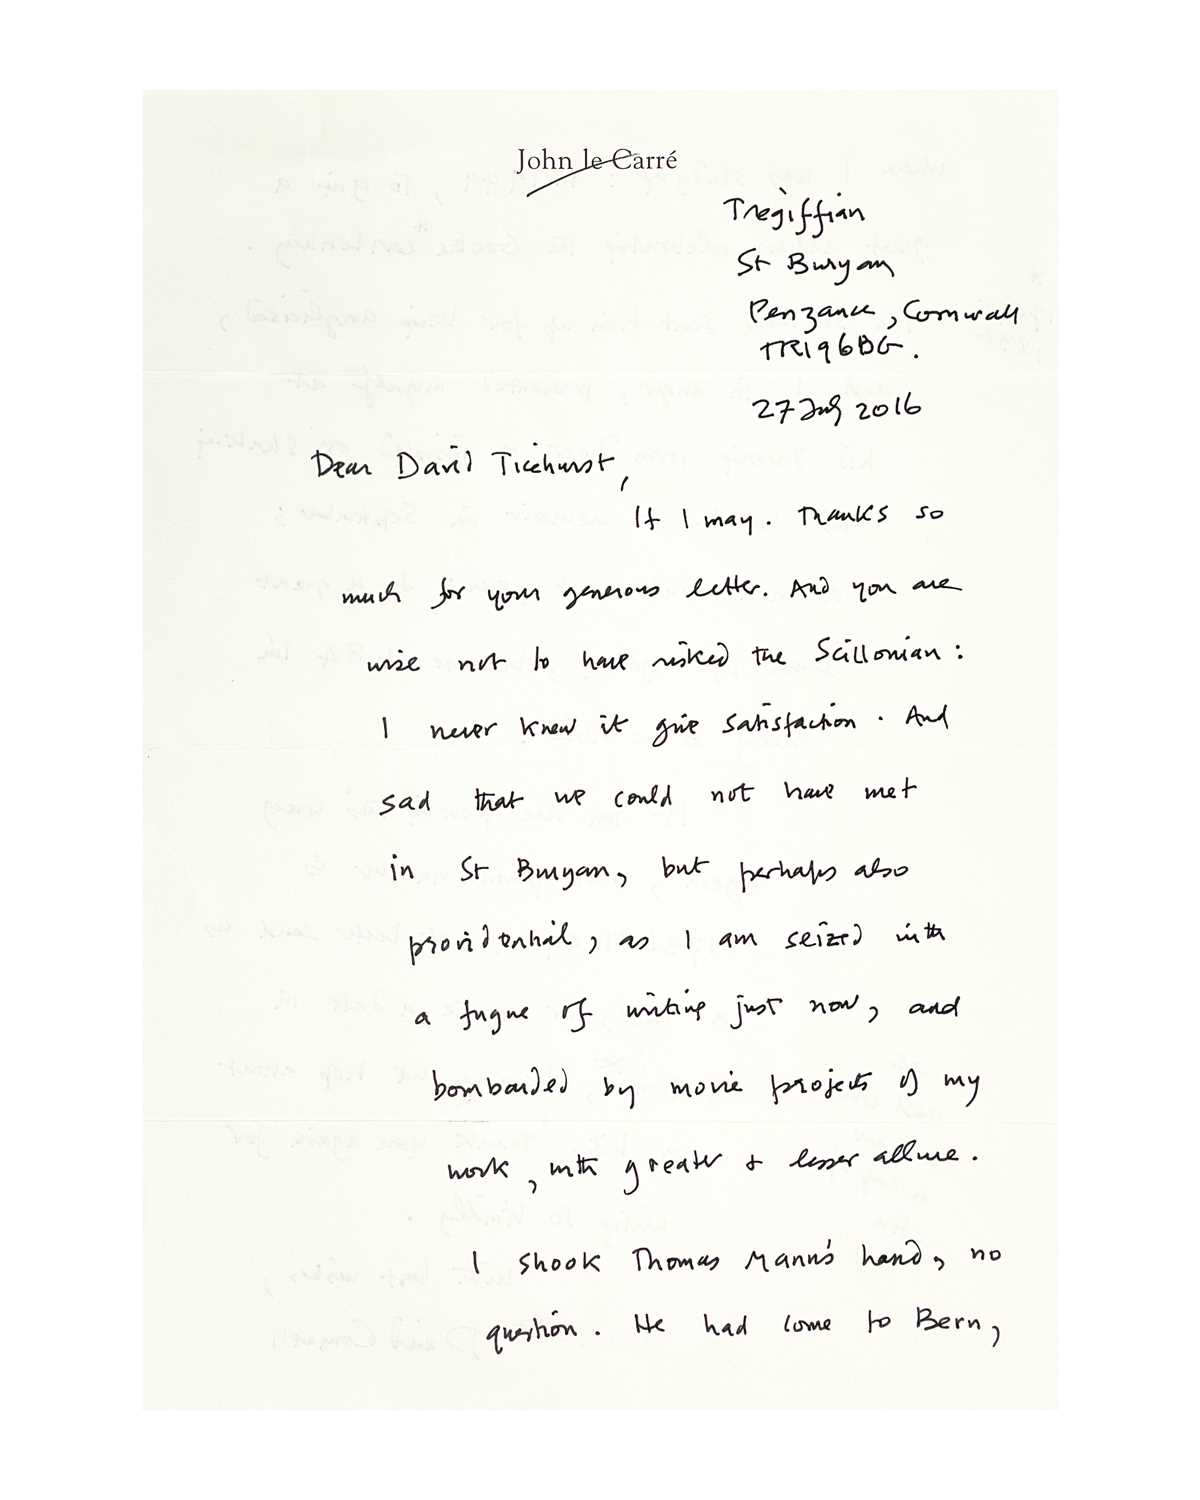 John le Carré
Tregiffian
St Buryan
Penzance, Cornwall
TR19 6BG.
27 July 2016
Dear David Ticehurst,
If I may. Thanks so
much for your generous letter. And you are
wise not to have risked the Scillonian:
I never knew it give satisfaction. And
sad that we could not have met
in St Buryan, but perhaps also
providential, as I am seized with
a fugue of writing just now, and
bombarded by movie projects of my
work, with greater + lesser allure.
I shook Thomas Mann's hand, no
question. He had come to Bern,